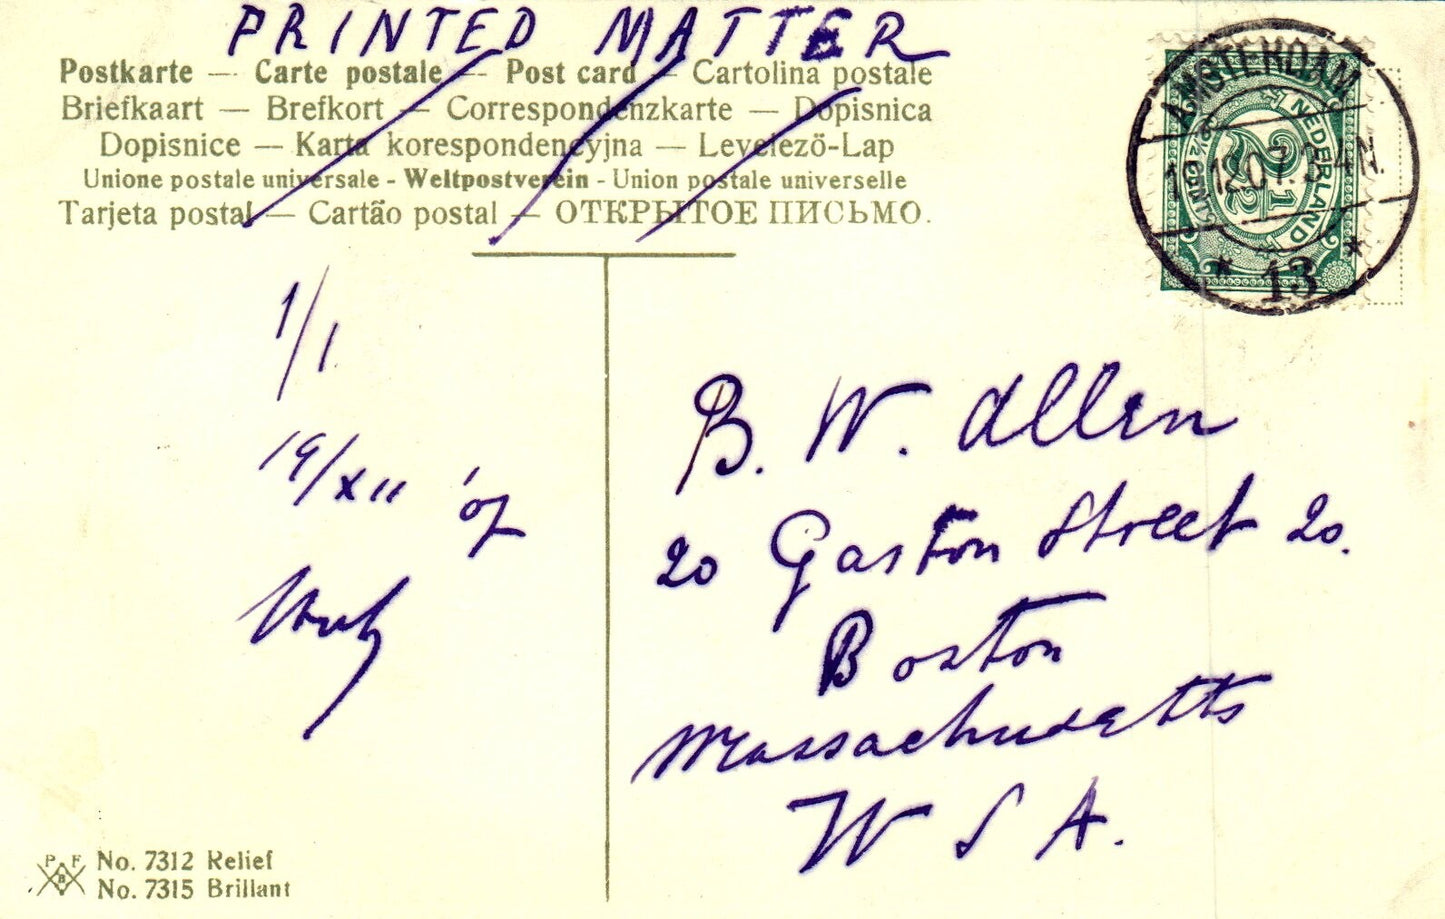 PRINTED MATTER
Postkarte — Carte postale — Post card — Cartolina postale
Briefkaart — Brefkort — Correspondenzkarte — Dopisnica
Dopisnice — Karta korespondencyjna — Levelező-Lap
Unione postale universale - Weltpostverein - Union postale universelle
Tarjeta postal — Cartão postal — ОТКРЫТОЕ ПИСЬМО.
AMSTERDAM
12.07. 3-4N.
* 13 *
NEDERLAND
2 1/2
1/1
19/XII '07
B. W. Allen
20 Gaston Street 20.
Boston
Massachusetts
U S A.
P. F.
B
No. 7312 Relief
No. 7315 Brillant